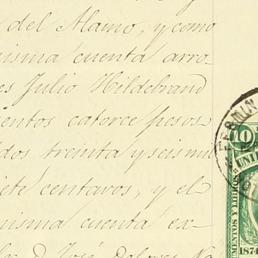 del Alamo, y como
misma cuenta arro-
es Julio Hildebrand
entos catorce pesos
dos treinta y seis mi
ete centavos, y el
misma cuenta ex-
D. José Dolores
10
UNI
MENTOS Y LIBROS
1874